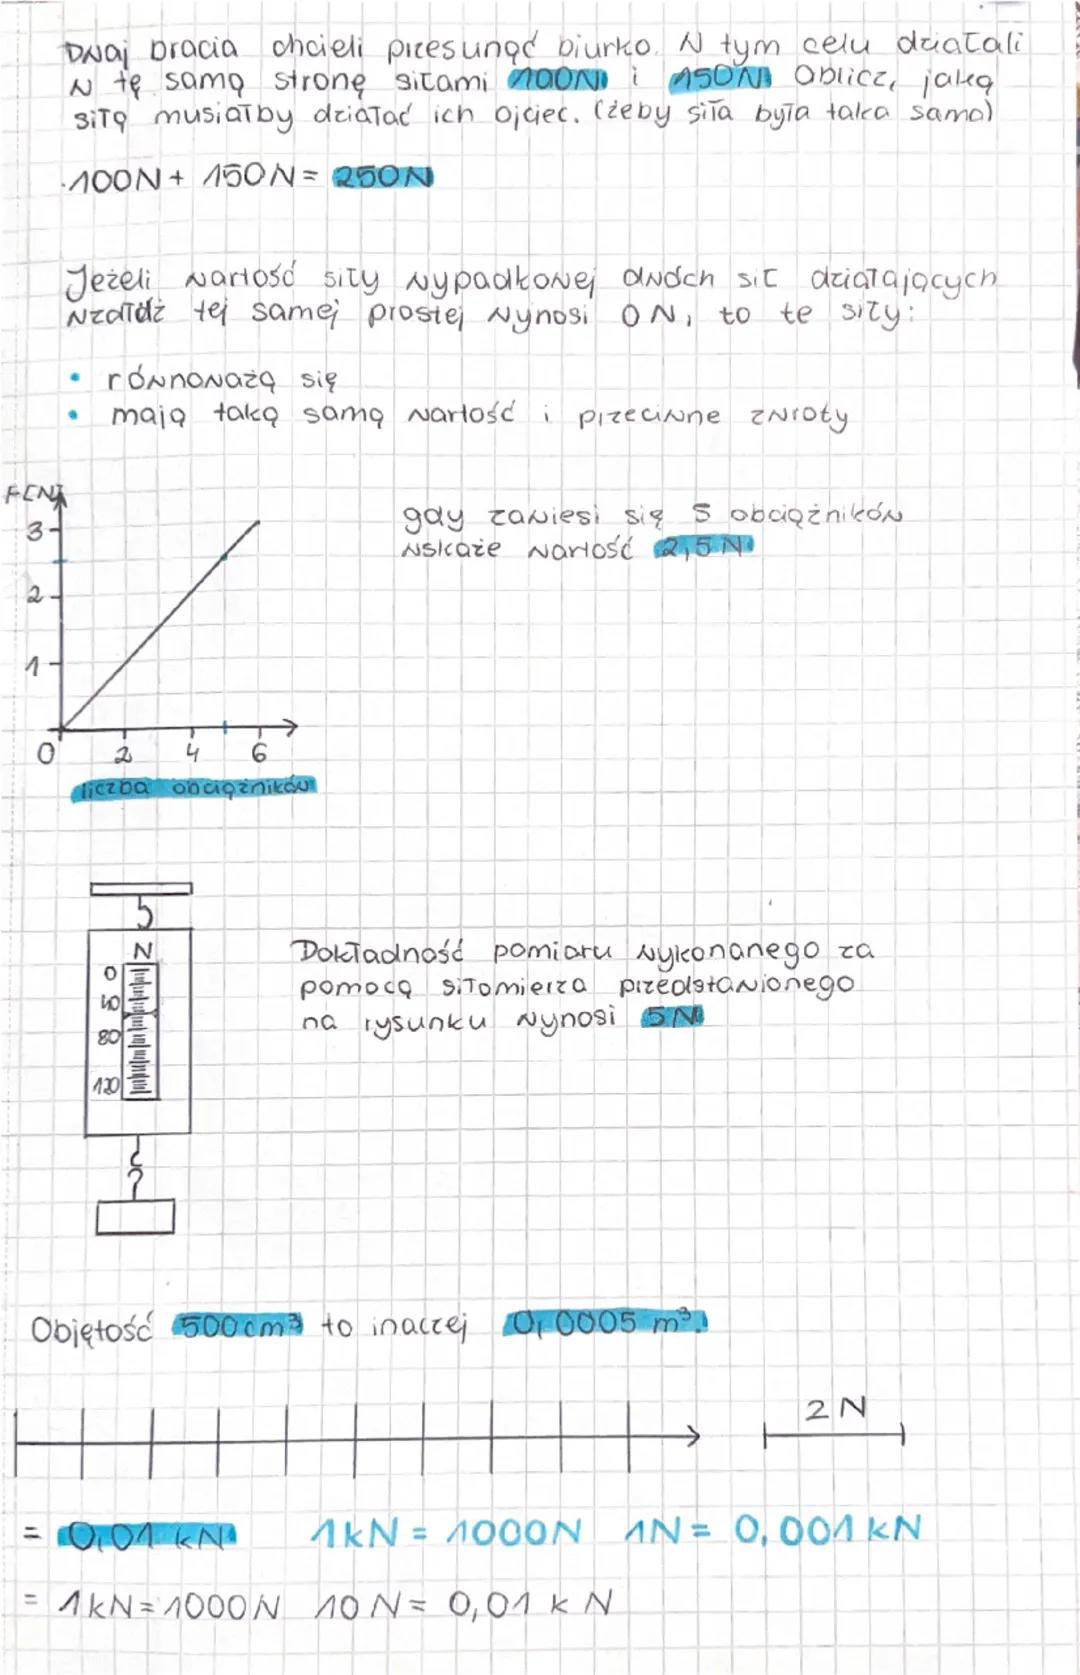 Dwaj bracia chcieli przesunąć biurko. W tym celu działali
w tę samą stronę siłami 100N i 150N Oblicz, jaką
siłą musiałby działać ich ojciec. (żeby siła była taka sama)
100N + 150N = 250N
Jeżeli wartość siły wypadkowej dwóch sił działających
wzdłuż tej samej prostej wynosi 0N, to te siły:
• równoważą się
• mają taką samą wartość i przeciwne zwroty
F[N]
3
gdy zawiesi się 5 obciążników
wskaże wartość 2,5N
2
1
0 2 4 6
liczba obciążników
N
0
40
80
120
Dokładność pomiaru wykonanego za
pomocą siłomierza przedstawionego
na rysunku wynosi 5N
Objętość 500cm³ to inaczej 0,0005 m³.
2N
= 0,01 kN 1kN = 1000N 1N = 0,001 kN
= 1kN = 1000N 10N = 0,01 kN